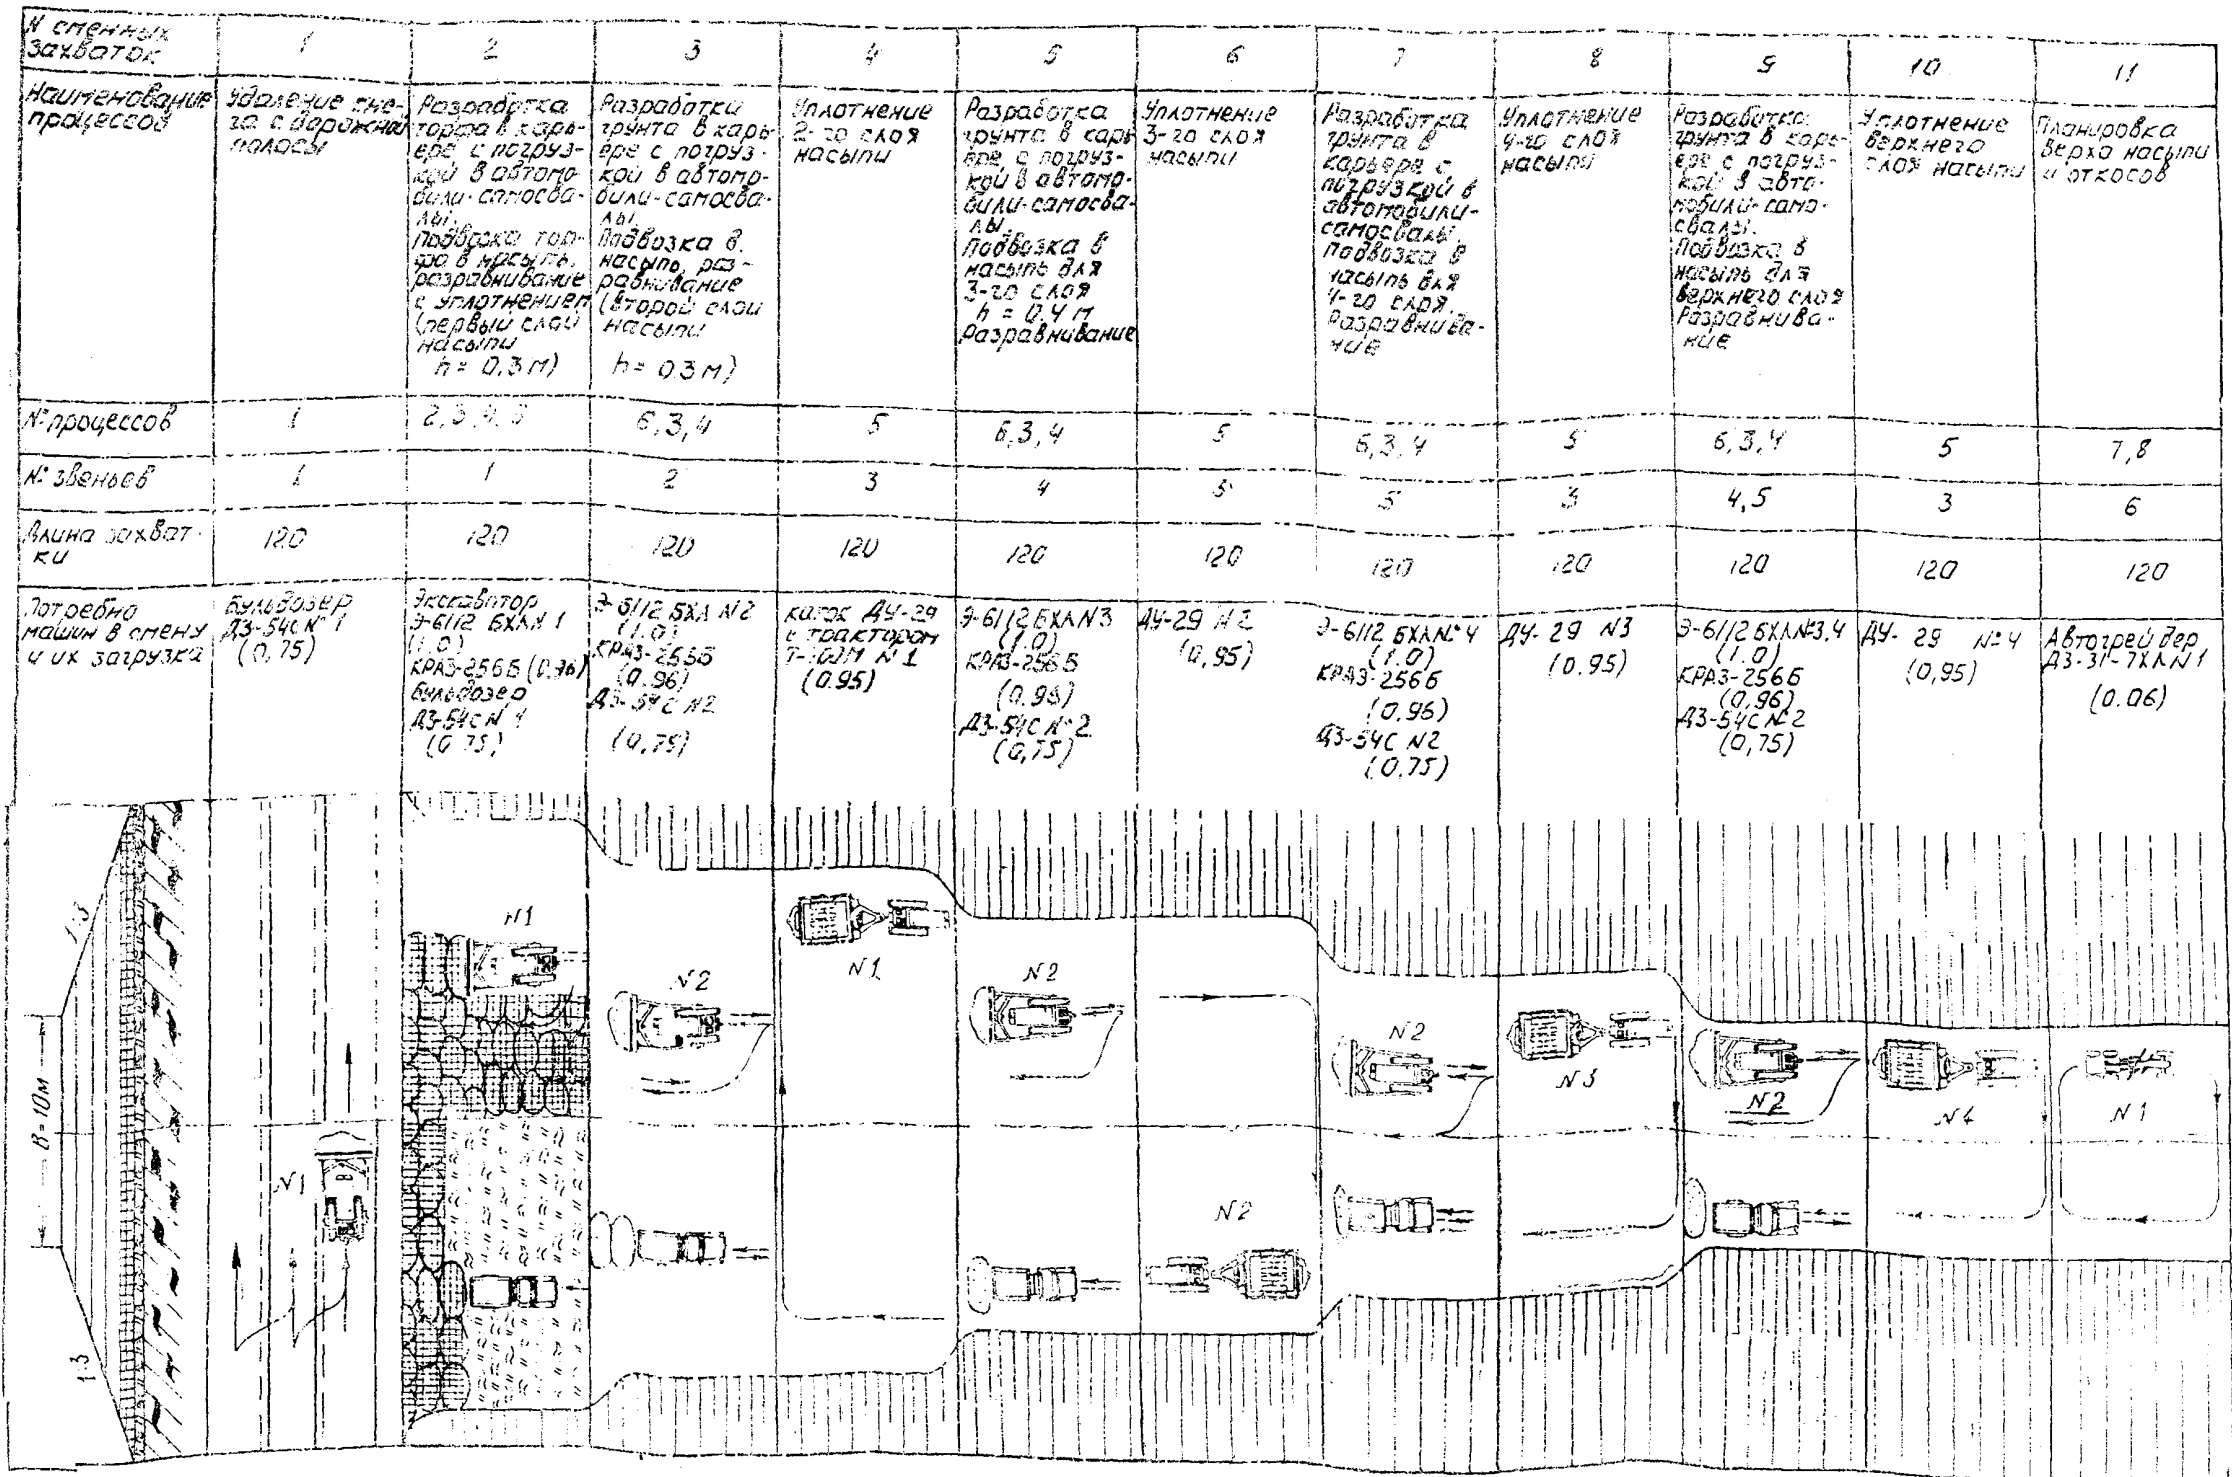 N сменных
захваток
1
2
3
4
5
6
7
8
9
10
11
Наименование
процессов
Удаление сне-
га с дорожной
полосы
Разработка
торфа в карь-
ере с погруз-
кой в автомо
били-самосва-
лы.
Подвозка тор-
фа в насыпь,
разравнивание
с уплотнением
(первый слой
насыпи
h = 0,3 м)
Разработки
грунта в карь-
ере с погруз-
кой в автомо-
били-самосва-
лы.
Подвозка в
насыпь, раз-
равнивание
(второй слой
насыпи
h = 0.3 м)
Уплотнение
2-го слоя
насыпи
Разработка
грунта в карь
ере с погруз-
кой в автомо-
били-самосва-
лы.
Подвозка в
насыпь для
3-го слоя
h = 0.4 м
Разравнивание
Уплотнение
3-го слоя
насыпи
Разработка
грунта в
карьере с
погрузкой в
автомобили-
самосвалы.
Подвозка в
насыпь для
4-го слоя.
Разравнива-
ние
Уплотнение
4-го слоя
насыпи
Разработка
грунта в карь-
ере с погруз-
кой в авто-
мобили-само-
свалы.
Подвозка в
насыпь для
верхнего слоя
Разравнива-
ние
Уплотнение
верхнего
слоя насыпи
Планировка
верха насыпи
и откосов
№ процессов
1
2,3,
6,3,4
5
6,3,4
5
6,3,4
5
6,3,4
5
7,8
№ звеньев
1
1
2
3
4
5
3
4,5
3
6
Длина захват-
ки
120
120
120
120
120
120
120
120
120
120
120
Потребно
машин в смену
и их загрузка
Бульдозер
ДЗ-54С № 1
(0,75)
Экскаватор
Э-6112 БХЛ N 1
(1.0)
КРАЗ-256Б (0.96)
Бульдозер
ДЗ-54С N 1
(0.75)
Э-6112 БХЛ N2
(1.0)
КРАЗ-256Б
(0.96)
ДЗ-54С N2
(0,75)
каток ДУ-29
с трактором
N 1
(0.95)
Э-6112 БХЛ N3
(1.0)
КРАЗ-256Б
(0.96)
ДЗ-54С №2
(0,75)
ДУ-29 N2
(0,95)
Э-6112 БХЛ №4
(1.0)
КРАЗ-256Б
(0.96)
ДЗ-54С N2
(0.75)
ДУ-29 N3
(0.95)
Э-6112 БХЛ №3,4
(1.0)
КРАЗ-256Б
(0,96)
ДЗ-54С №2
(0,75)
ДУ-29 №4
(0,95)
Автогрейдер
ДЗ-31-7ХЛ N1
(0.06)
1:3
N1
N2
N1
N2
N2
N3
N2
N4
N1
В=10м
N1
N2
1:3